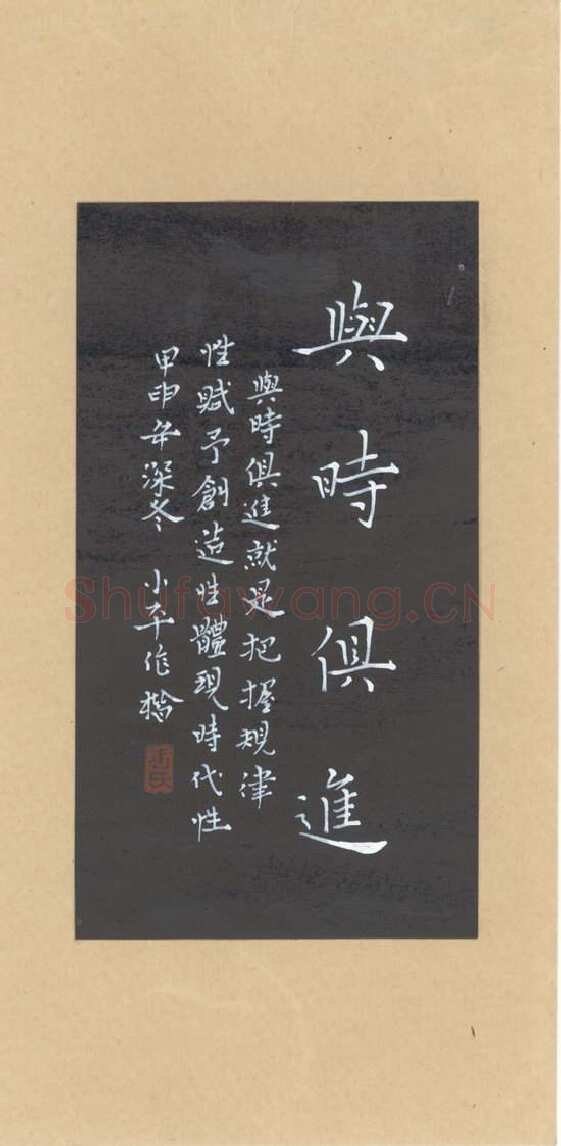 與時俱進
與時俱進就是把握規律
性賦予創造性體現時代性
甲申年深冬 小平作
Shufawang.CN